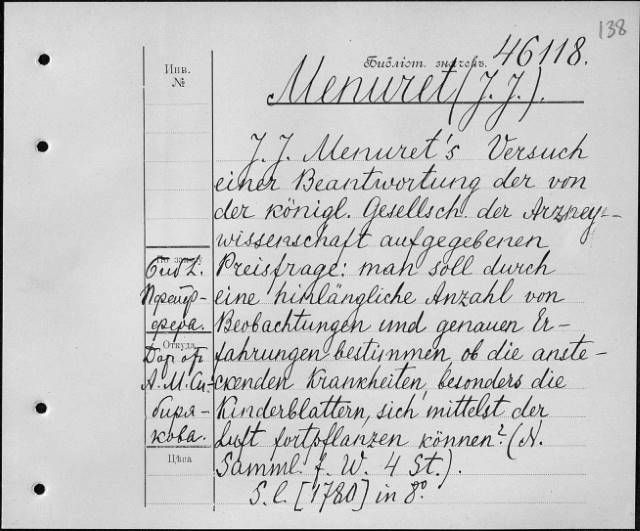 138
Библіот. значекъ. 46118.
Инв.
№
Menuret (J. J.).
J. J. Menuret's Versuch
einer Beantwortung der von
der königl. Gesellsch. der Arzney-
wissenschaft aufgegebenen
Preisfrage: man soll durch
eine hinlängliche Anzahl von
Beobachtungen und genauen Er-
fahrungen bestimmen, ob die anste-
ckenden Krankheiten, besonders die
Kinderblattern, sich mittelst der
Luft fortpflanzen können? (N.
Samml. f. W. 4 St.).
S. l. [1780] in 8º
Библ.
Пфейф-
фера.
Откуда
Дар от
А. М. Си-
биря-
кова.
Цѣна